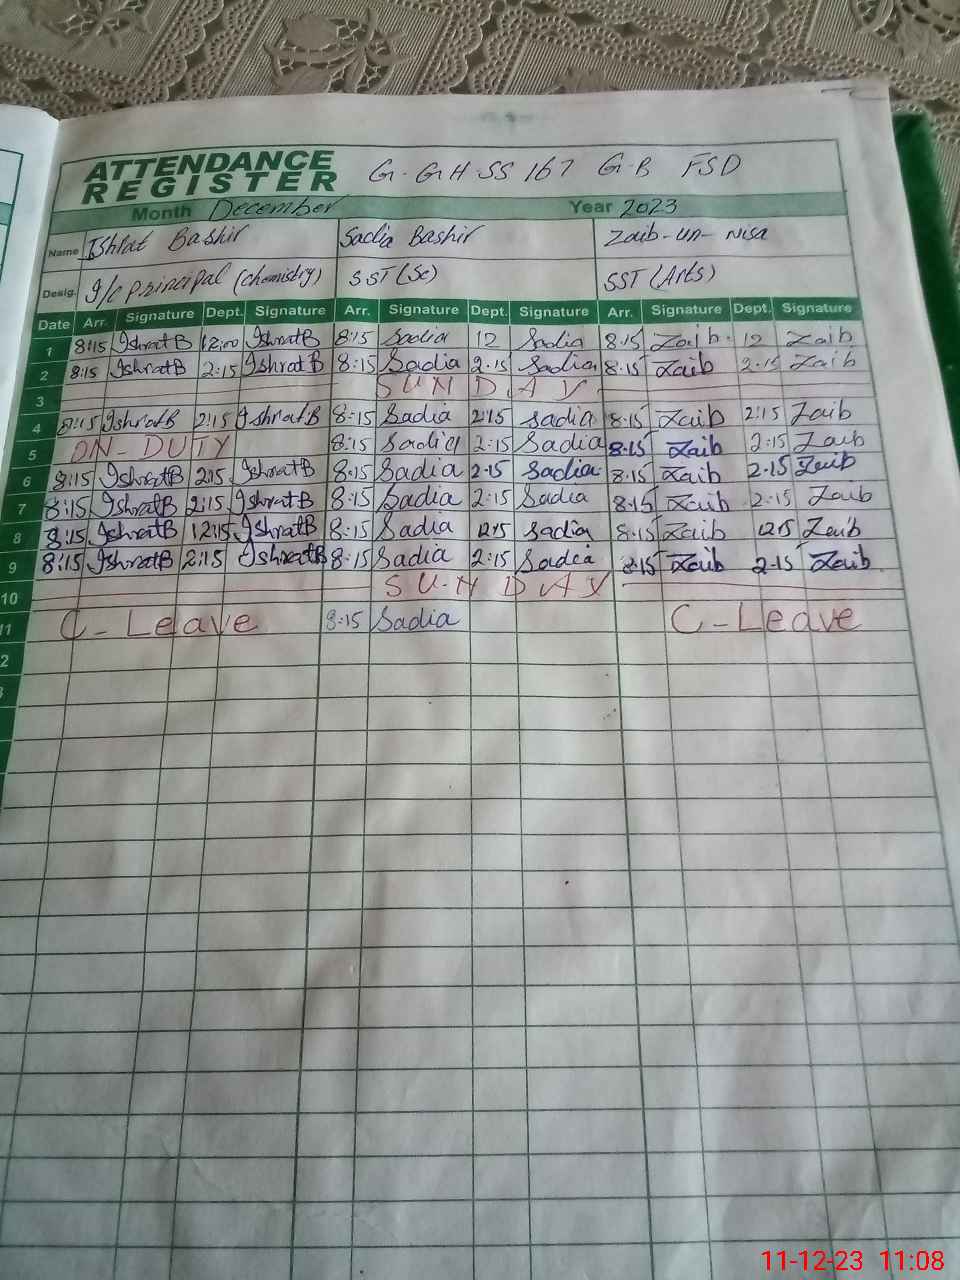 ATTENDANCE
REGISTER G. GHSS 167 G-B FSD
Month December Year 2023
Name Ishrat Bashir Sadia Bashir Zaib-un-Nisa
Desig. I/C principal (chemistry) SST (Sc) SST (Arts)
Date Arr. Signature Dept. Signature Arr. Signature Dept. Signature Arr. Signature Dept. Signature
1 8:15 IshratB 12:00 IshratB 8:15 Sadia 12 Sadia 8.15 Zaib 12 Zaib
2 8:15 IshratB 2:15 IshratB 8:15 Sadia 2.15 Sadia 8.15 Zaib 2.15 Zaib
3 SUNDAY
4 8:15 IshratB 2:15 IshratB 8:15 Sadia 2:15 Sadia 8.15 Zaib 2:15 Zaib
5 ON-DUTY 8:15 Sadia 2:15 Sadia 8.15 Zaib 2:15 Zaib
6 8:15 IshratB 2:15 IshratB 8:15 Sadia 2.15 Sadia 8.15 Zaib 2.15 Zaib
7 8:15 IshratB 2:15 IshratB 8:15 Sadia 2:15 Sadia 8.15 Zaib 2.15 Zaib
8 8:15 IshratB 12:15 IshratB 8:15 Sadia 12:15 Sadia 8.15 Zaib 12.15 Zaib
9 8:15 IshratB 2:15 IshratB 8:15 Sadia 2:15 Sadia 8.15 Zaib 2.15 Zaib
10 SUNDAY
11 C-Leave 8:15 Sadia C-Leave
2
11-12-23 11:08